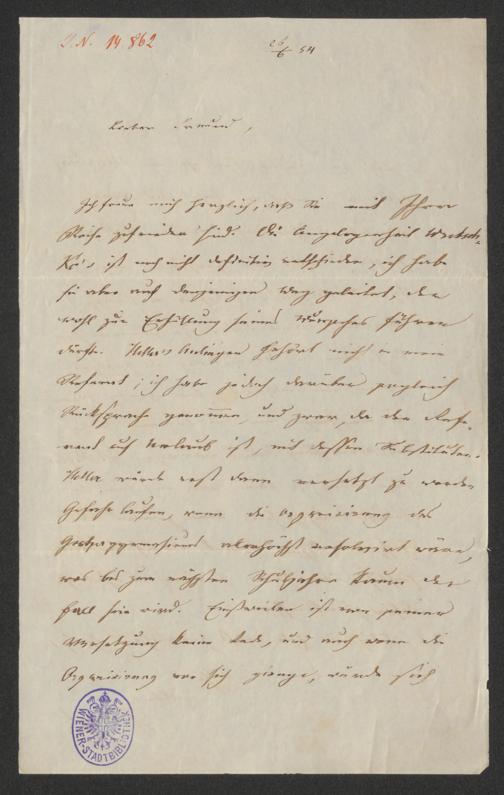 I.N. 14 862
26/6 54
Lieber Freund,
Ich freue mich herzlich, daß Sie mit Ihrer
Reise zufrieden sind. Die Angelegenheit
ist noch nicht definitiv entschieden, ich habe
sie aber auf denjenigen Weg geleitet, der
wohl zur Erfüllung seines Wunsches führen
dürfte. Hellers Anliegen gehört nicht in mein
Referat; ich habe jedoch darüber sogleich
Rücksprache genommen, und zwar, da der Refe-
rent auf Urlaub ist, mit dessen Substituten.
Heller würde erst dann versetzt zu werden
Gefahr laufen, wenn die Organisirung des
allerhöchst resolvirt wäre,
was bis zum nächsten Schuljahre kaum der
Fall sein wird. Einstweilen ist von seiner
Versetzung keine Rede, und auch wenn die
Organisirung vor sich gienge, würde sich
WIENER-STADTBIBLIOTHEK